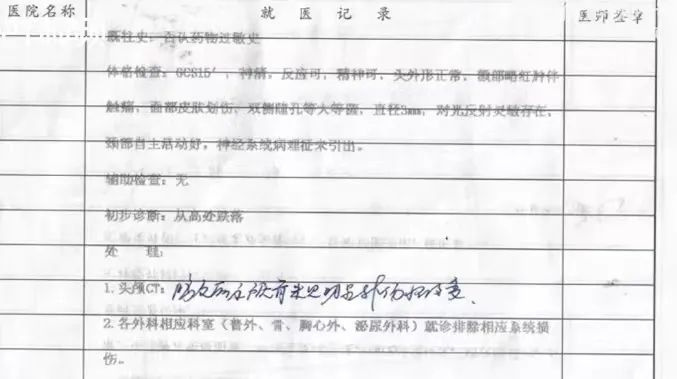 医院名称 就医记录 医师签章
既往史：否认药物过敏史
体格检查：GCS15′，神清，反应可，精神可，头外形正常，额部略红肿伴
触痛，面部皮肤划伤，双侧瞳孔等大等圆，直径3mm，对光反射灵敏存在，
颈部自主活动好，神经系统病理征未引出。
辅助检查：无
初步诊断：从高处跌落
处 理：
1.头颅CT：
2.各外科相应科室（普外、骨、胸心外、泌尿外科）就诊排除相应系统损
伤。